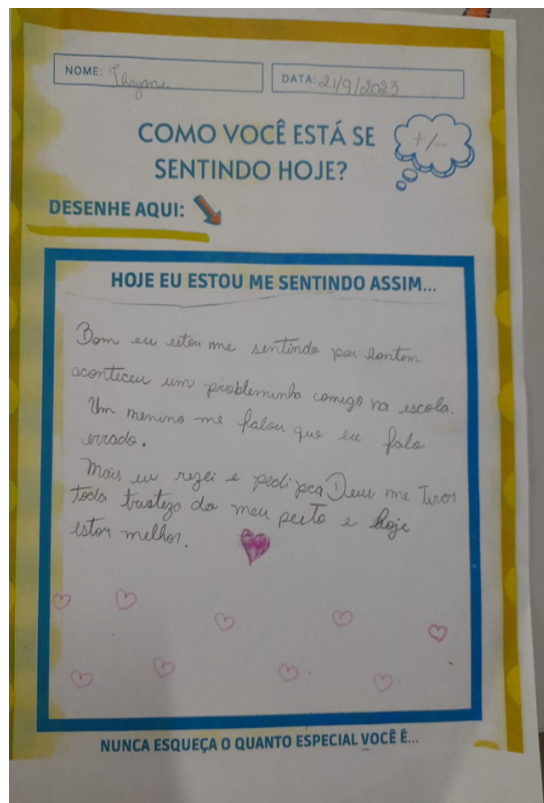 NOME: Thayane
DATA: 21/9/2023
+/-
COMO VOCÊ ESTÁ SE
SENTINDO HOJE?
DESENHE AQUI:
HOJE EU ESTOU ME SENTINDO ASSIM...
Bom eu estou me sentindo por ontem
aconteceu um probleminha comigo na escola.
Um menino me falou que eu falo
errado.
Mais eu rezei e pedi pra Deus me tirar
toda tristeza do meu peito e hoje
estou melhor.
NUNCA ESQUEÇA O QUANTO ESPECIAL VOCÊ É...